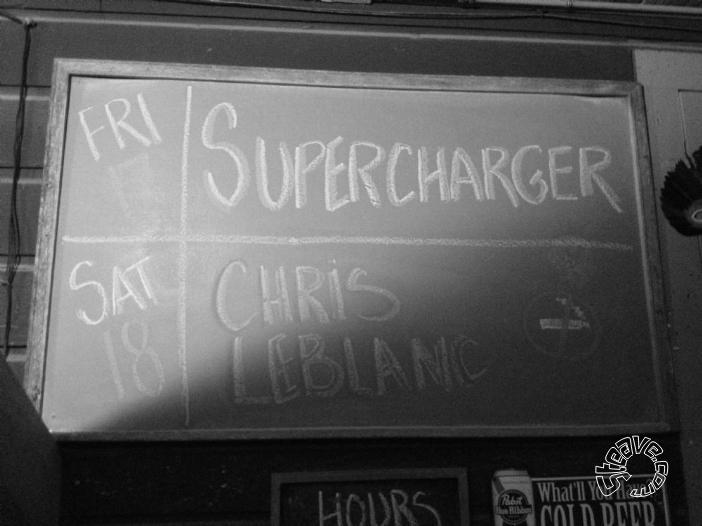 FRI
17
SUPERCHARGER
SAT
18
CHRIS
LEBLANC
HOURS
Pabst
Blue Ribbon
What'll You Have
COLD BEER
steave.com